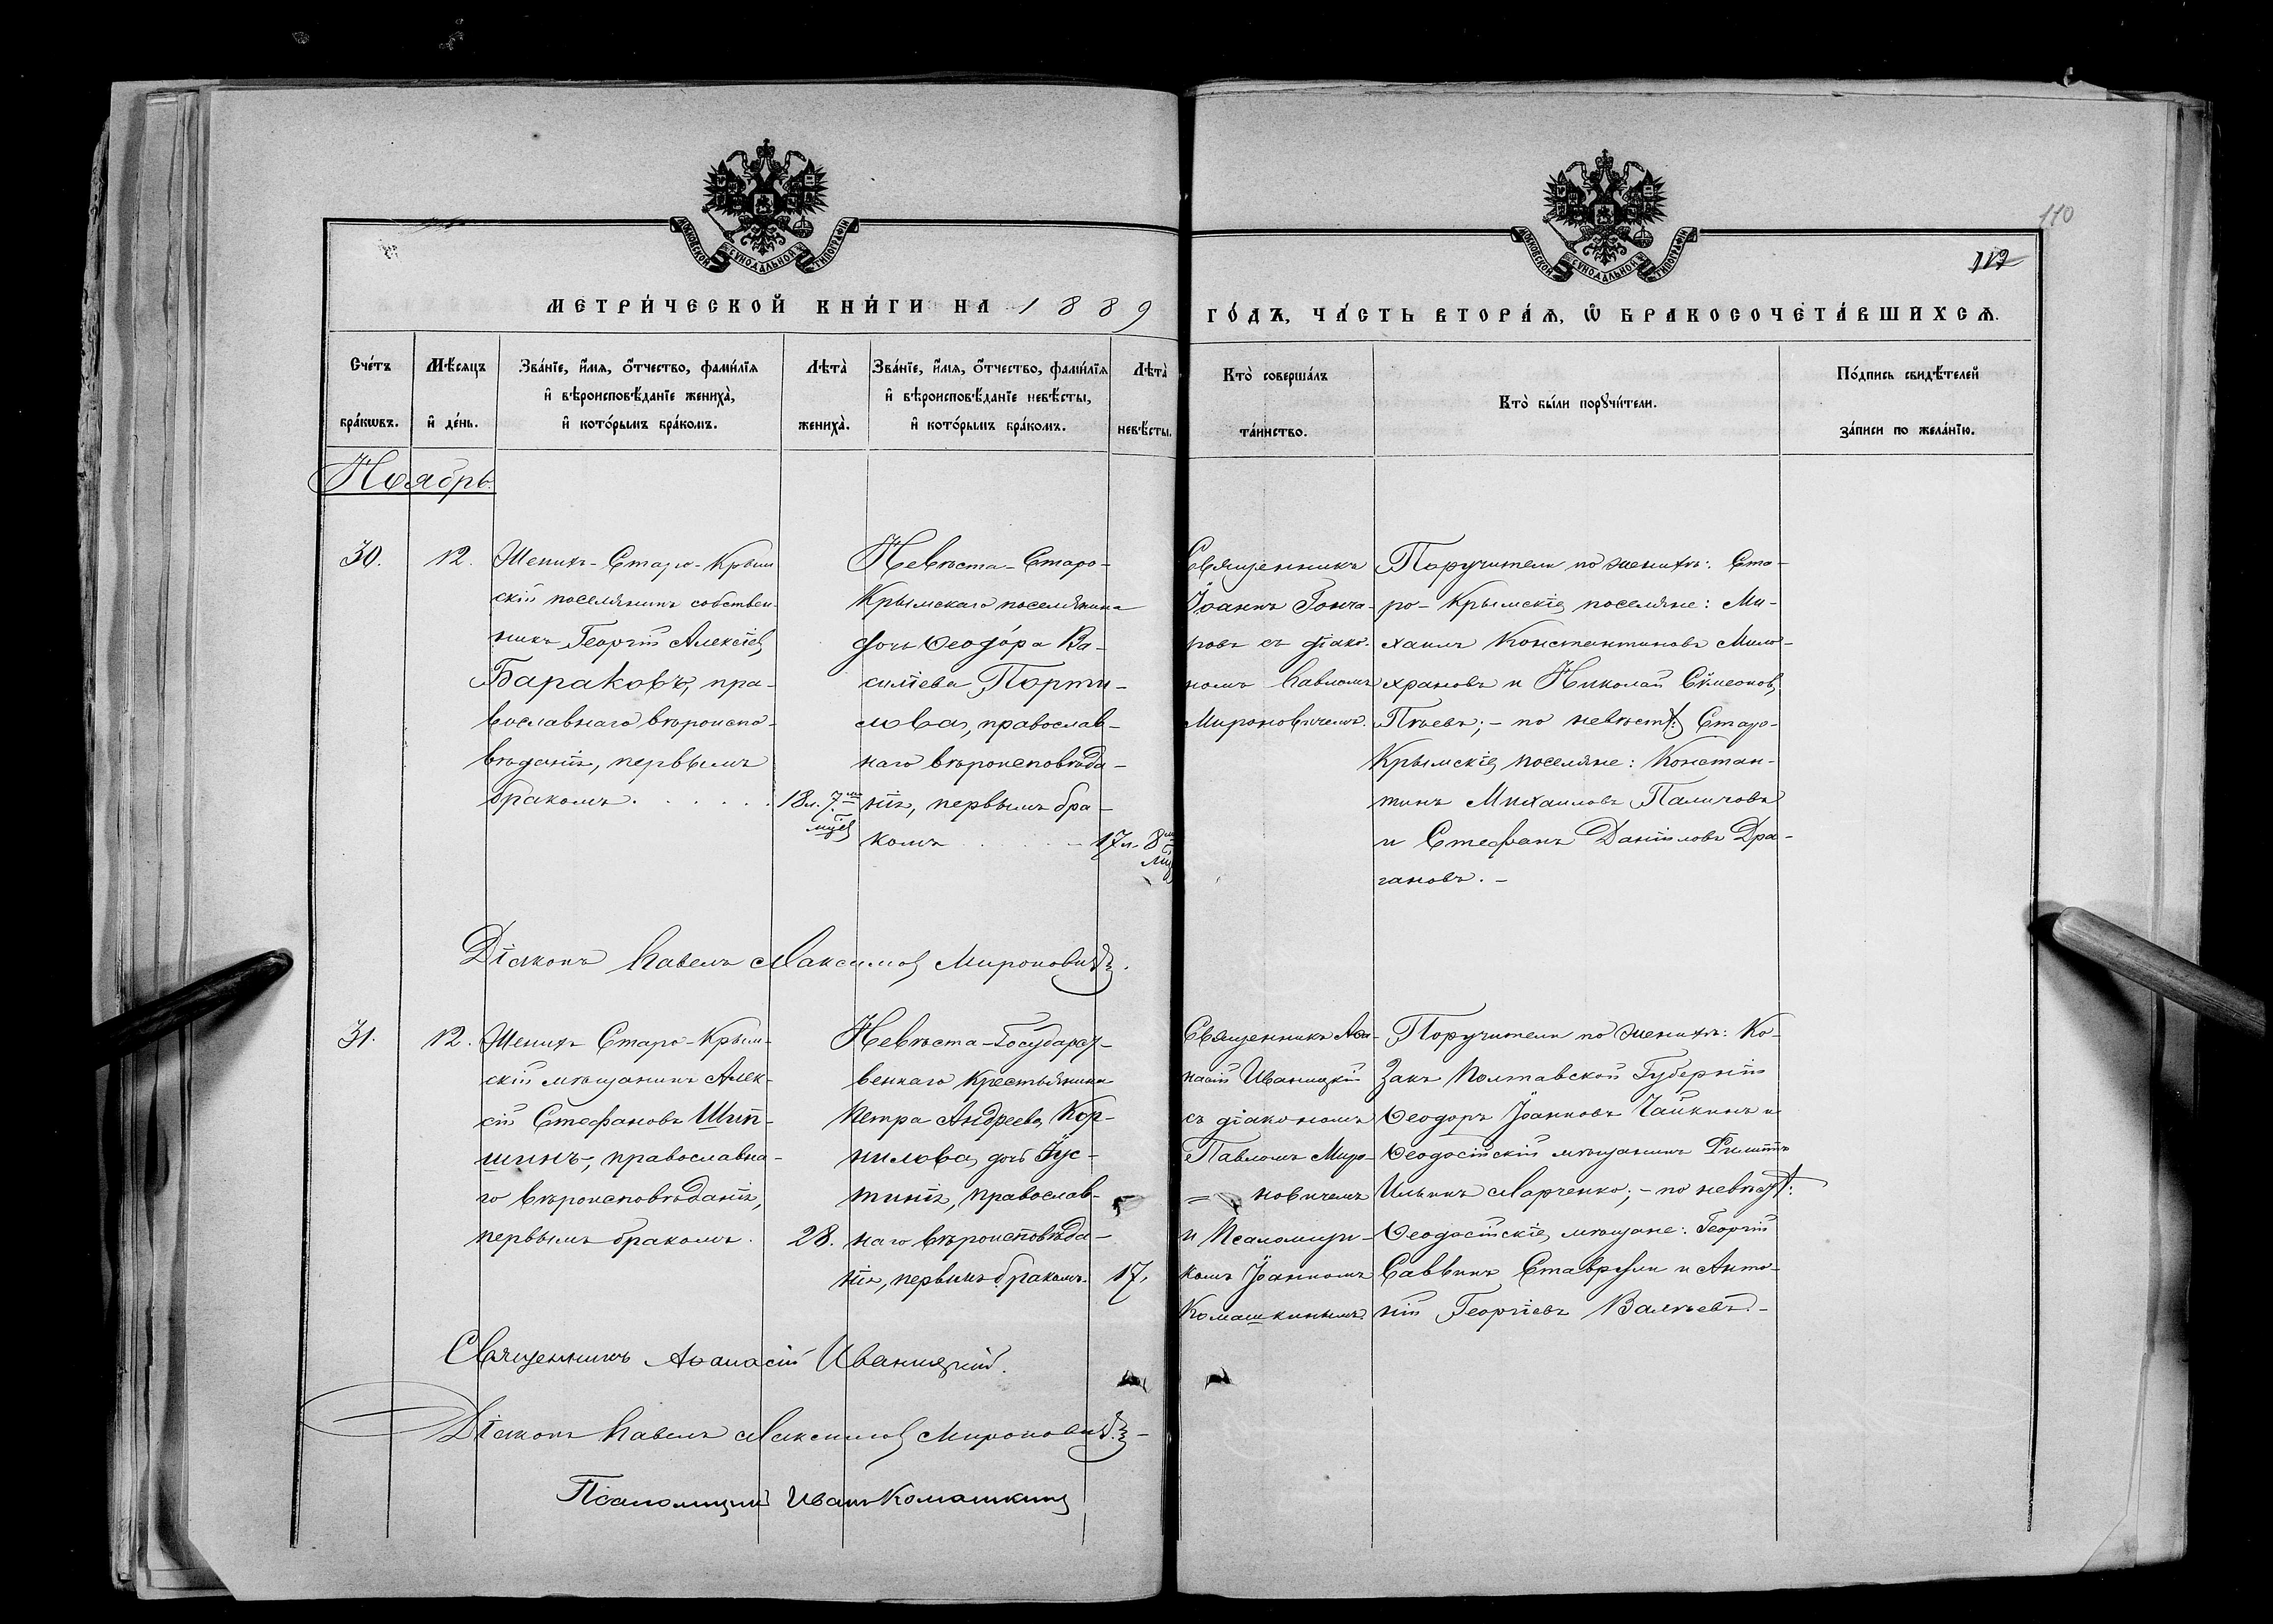 110
112
МОСКОВСКОЙ СѴНОДАЛЬНОЙ ТИПОГРАФІИ
МОСКОВСКОЙ СѴНОДАЛЬНОЙ ТИПОГРАФІИ
МЕТРИ́ЧЕСКОЙ КНИ́ГИ НА 1889
ГО́ДЪ, ЧА́СТЬ ВТОРА́Ѧ, Ѡ҆ БРАКОСОЧЕТА́ВШИХСѦ.
Сче́тъ
бра́кѡвъ.
Мѣ́сяцъ
и҆ де́нь.
Зва́нїе, и҆́мя, ѻ҆́тчество, фами́лїя
и҆ вѣроисповѣ́данїе жениха̀,
и҆ кото́рымъ бра́комъ.
Лѣта̀
жениха̀.
Зва́нїе, и҆́мя, ѻ҆́тчество, фами́лїя
и҆ вѣроисповѣ́данїе невѣ́сты,
и҆ кото́рымъ бра́комъ.
Лѣта̀
невѣ́сты.
Кто̀ соверша́лъ
та́инство.
Кто̀ бы́ли порꙋчи́тели.
По́дпись свидѣ́телей
за́писи по жела́нїю.
Ноябрь.
30.
12.
Женихъ - Старо - Крым
скій поселянинъ собствен-
никъ Георгій Алексіев
Бараковъ, пра-
вославнаго вѣроиспо-
вѣданія, первымъ
бракомъ.
18 л. 7 ми
мцев
Невѣста - Старо-
Крымскаго поселянина
дочь Ѳеодо́ра Ва-
силіева Порти-
лова, православ-
наго вѣроисповѣда-
нія, первымъ бра-
комъ
17 л. 8 ми
Мц
Священникъ
Іоаннъ Гонча-
ровъ съ діако-
номъ Павломъ
Мироновичемъ.
Поручители по женихѣ: Ста-
ро - Крымскіе поселяне: Ми-
хаилъ Константиновъ Мило-
храновъ и Николай Сѵмеонов
Пѣевъ; - по невѣстѣ: Старо-
Крымскіе поселяне: Констан-
тинъ Михаиловъ Паличовъ
и Стефанъ Даніиловъ Дра-
гановъ. -
Діаконъ Павелъ Максимов Мироновичъ.
31.
12.
Женихъ Старо - Крым-
скій мѣщанинъ Алек-
сій Стефановъ Шип-
шинъ, православна-
го вѣроисповѣданія,
первымъ бракомъ.
28.
Невѣста - Государст-
веннаго Крестьянина
Петра Андреева Кор-
нилова дочь Іус-
тинія, православ-
наго вѣроисповѣда-
нія, первымъ бракомъ.
17.
Священникъ Аѳа-
насій Иваницкій
съ діакономъ
Павломъ Миро-
= новичемъ
и Псаломщи-
комъ Іоанномъ
Комашкинымъ.
Поручители по женихѣ: Ко-
закъ Полтавской Губерніи
Ѳеодоръ Іоанновъ Чайкинъ и
Ѳеодосійскій мѣщанинъ Филиппъ
Ильинъ Марченко; - по невѣстѣ:
Ѳеодосійскіе мѣщане: Георгій
Саввинъ Ставрули и Анто-
ній Георгіевъ Валѣевъ. -
Священникъ Аѳанасій Иваницкій.
Діаконъ Павелъ Максимов Мироновичъ. -
Псаломщикъ Иванъ Комашкинъ